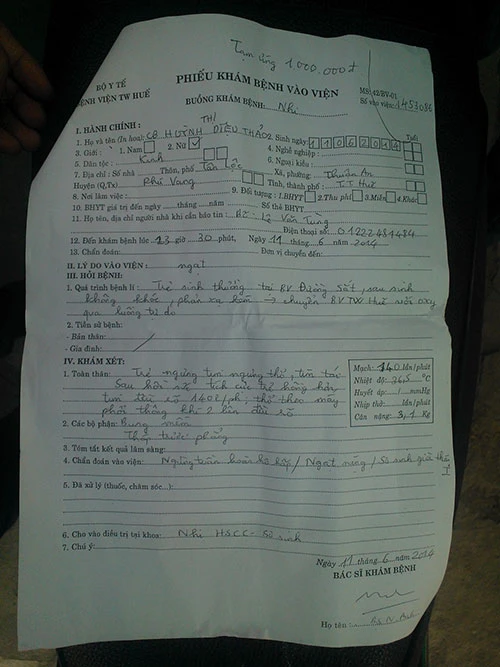 Tạm ứng 1000.000đ
BỘ Y TẾ
BỆNH VIỆN TW HUẾ
PHIẾU KHÁM BỆNH VÀO VIỆN
MS: 42/BV-01
BUỒNG KHÁM BỆNH: Nhi
Số vào viện: 1453086
I. HÀNH CHÍNH :
1. Họ và tên (In hoa): CB HUỲNH THỊ DIỆU THẢO 2. Sinh ngày: 11062014 Tuổi:
3. Giới : 1. Nam 2. Nữ 4. Nghề nghiệp:
5. Dân tộc : Kinh 6. Ngoại kiều:
7. Địa chỉ : Số nhà Thôn, phố Tân Lộc Xã, phường: Thuận An
Huyện (Q,Tx) Phú Vang Tỉnh, thành phố: T.T Huế
8. Nơi làm việc: 9. Đối tượng : 1.BHYT 2.Thu phí 3.Miễn 4.Khác
10. BHYT giá trị đến ngày tháng năm Số thẻ BHYT
11. Họ tên, địa chỉ người nhà khi cần báo tin : Bố: Lê Văn Tùng
Điện thoại số: 01222481484
12. Đến khám bệnh lúc 13 giờ 30 phút, Ngày 11 tháng 6 năm 2014
13. Chẩn đoán: Đơn vị chuyển đến:
II. LÝ DO VÀO VIỆN : ngạt
III. HỎI BỆNH:
1. Quá trình bệnh lí : Trẻ sinh thường tại BV Đường Sắt, sau sinh
không khóc, phản xạ kém → chuyển BVTW Huế với oxy
qua luồng tự do
2. Tiền sử bệnh:
- Bản thân:
- Gia đình:
IV. KHÁM XÉT:
1. Toàn thân: Trẻ ngưng tim ngưng thở, tím tái
Sau hồi sức tích cực trẻ hồng hơn
tim đều rõ 140l/ph; thở theo máy
phổi thông khí 2 bên đều rõ
Mạch: 140 lần/phút
Nhiệt độ: 36,5 °C
Huyết áp: / mmHg
Nhịp thở: lần/phút
Cân nặng: 3,1 Kg
2. Các bộ phận: Bụng mềm
Thóp trước phẳng
3. Tóm tắt kết quả lâm sàng:
4. Chẩn đoán vào viện: Ngừng tuần hoàn hô hấp / Ngạt nặng / Sơ sinh
5. Đã xử lý (thuốc, chăm sóc..):
6. Cho vào điều trị tại khoa: Nhi HSCC - Sơ sinh
7. Chú ý:
Ngày 11 tháng 6 năm 2014
BÁC SĨ KHÁM BỆNH
Họ tên: